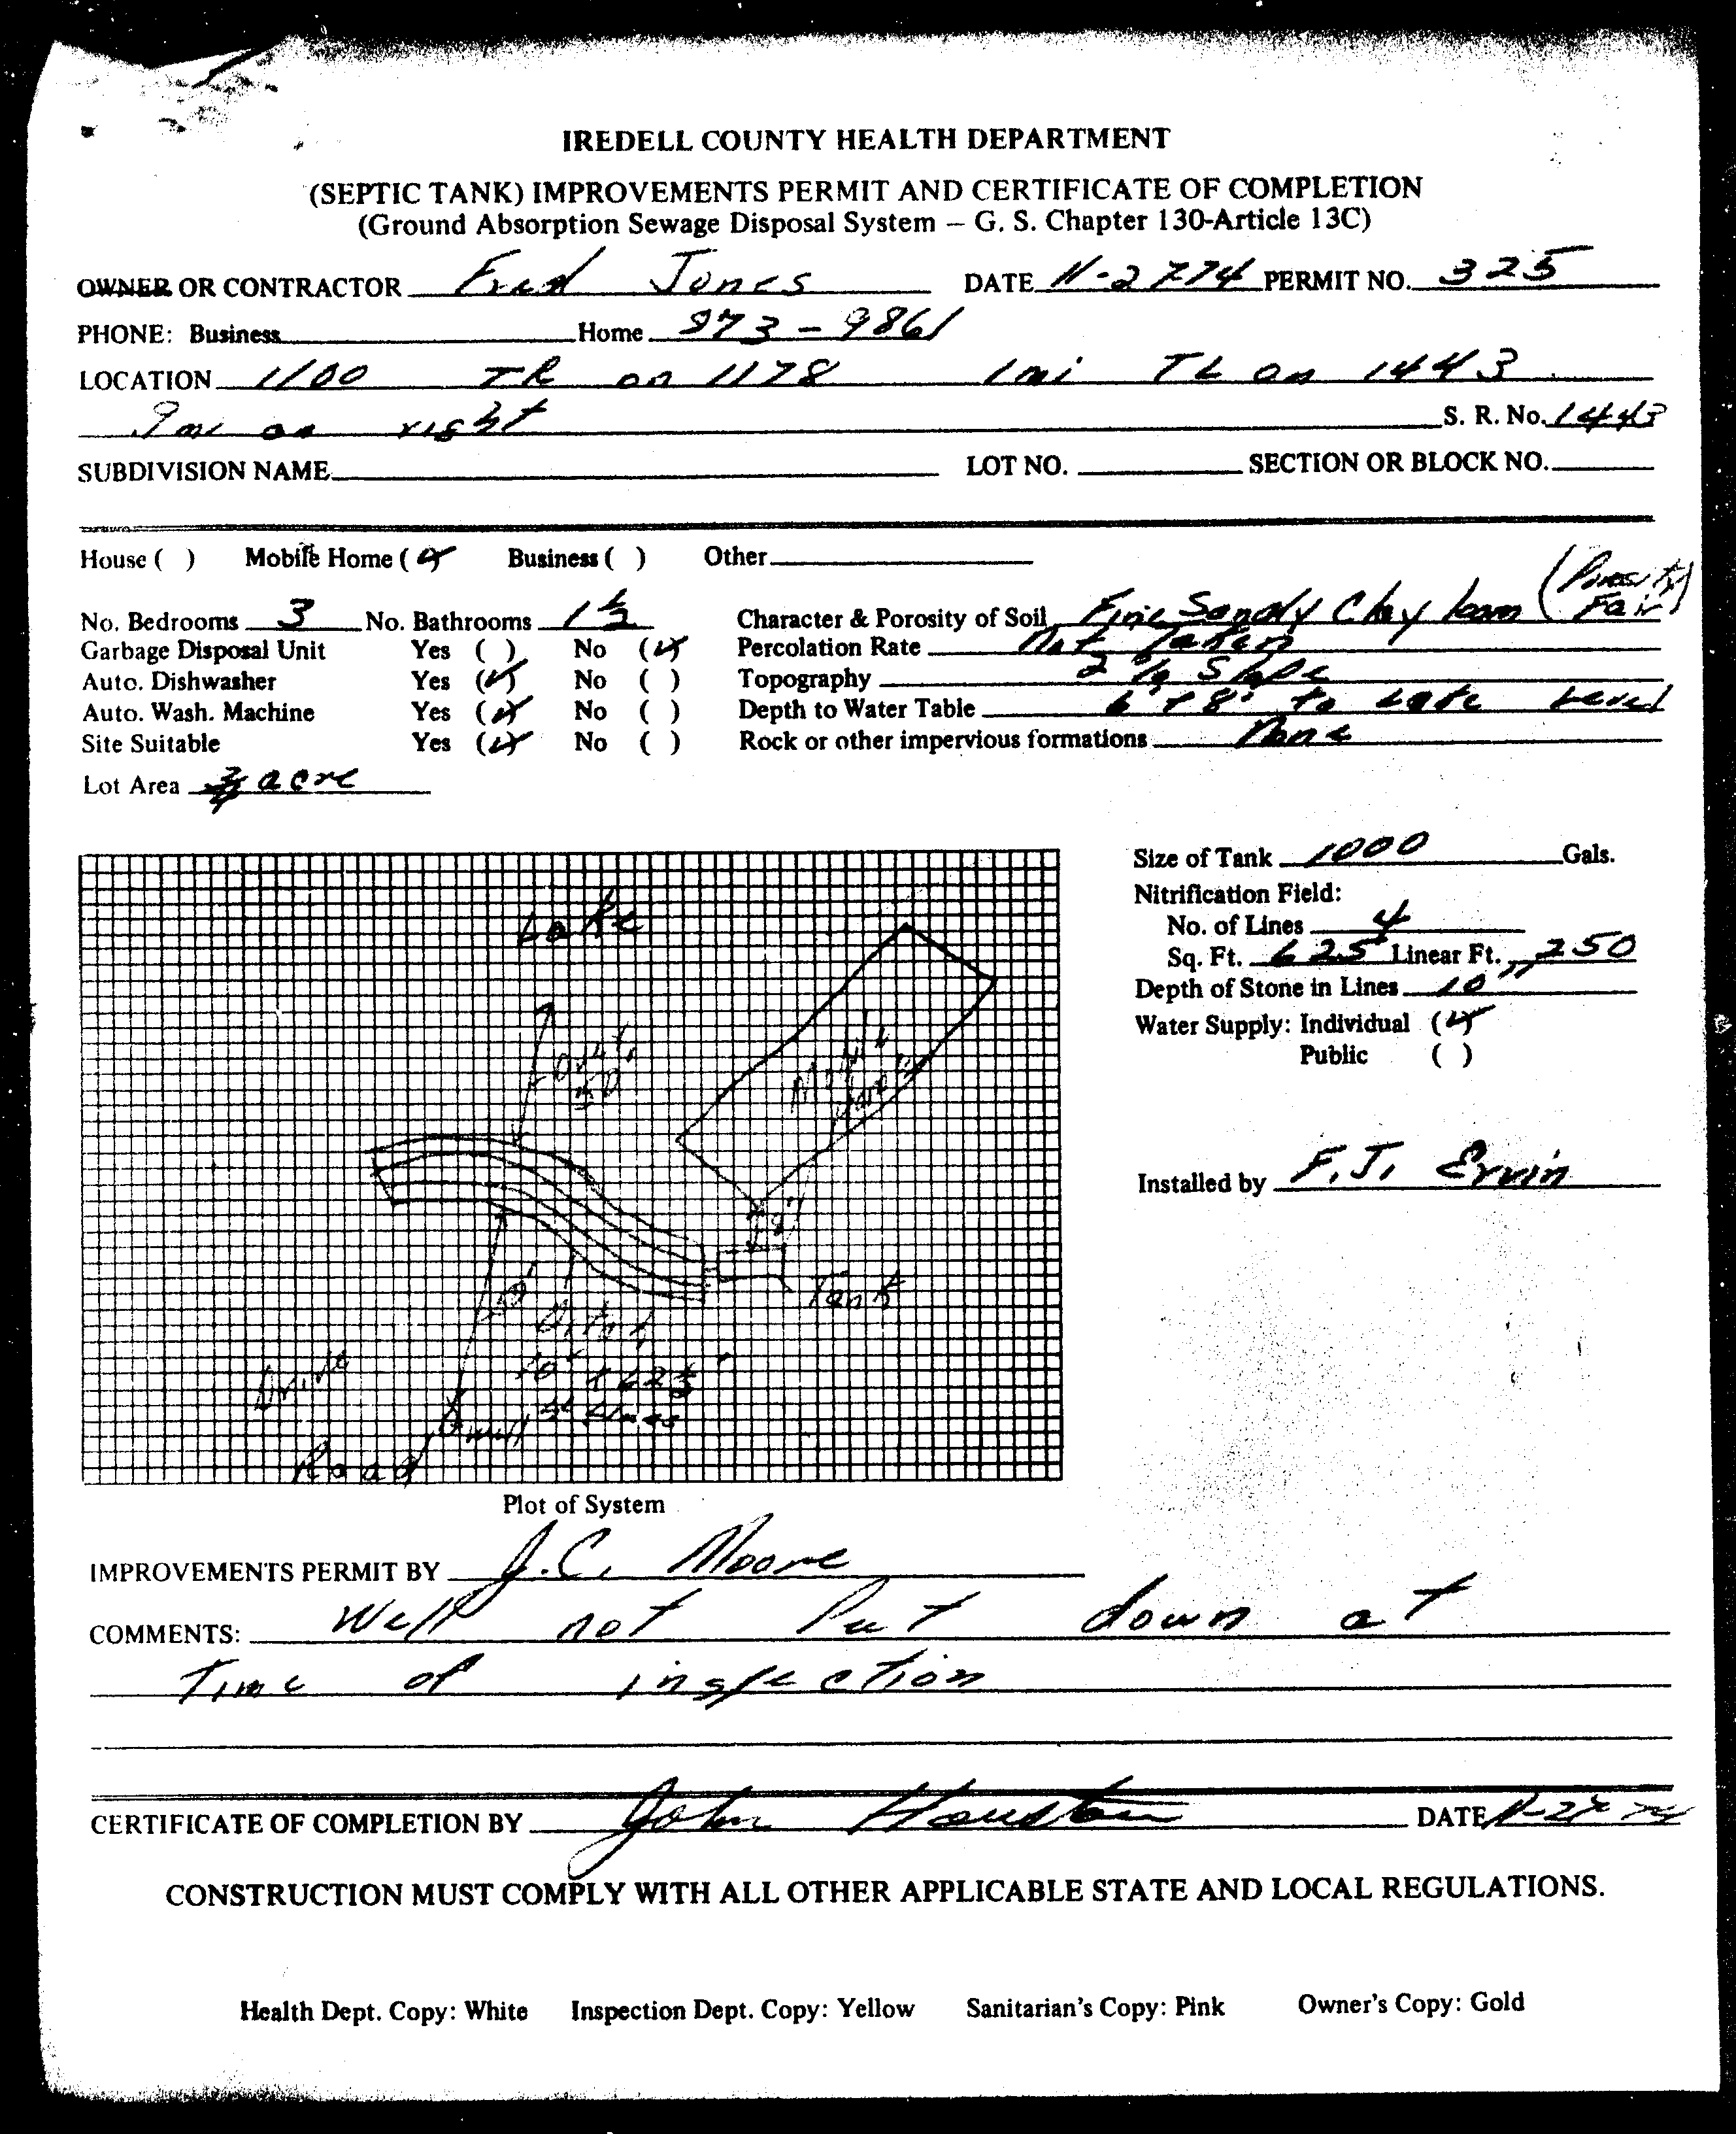 IREDELL COUNTY HEALTH DEPARTMENT
(SEPTIC TANK) IMPROVEMENTS PERMIT AND CERTIFICATE OF COMPLETION
(Ground Absorption Sewage Disposal System – G. S. Chapter 130-Article 13C)
OWNER OR CONTRACTOR Fred Jones DATE 11-27 74 PERMIT NO. 325
PHONE: Business Home 873-9861
LOCATION 1100 TR on 1178 1mi TL on 1443
mi on right S. R. No. 1443
SUBDIVISION NAME LOT NO. SECTION OR BLOCK NO.
House ( ) Mobile Home (✓) Business ( ) Other
No. Bedrooms 3 No. Bathrooms 1 1/2 Character & Porosity of Soil Fine Sandy Clay loam (Porosity Fair)
Garbage Disposal Unit Yes ( ) No (✓) Percolation Rate Not Taken
Auto. Dishwasher Yes (✓) No ( ) Topography 2% Slope
Auto. Wash. Machine Yes (✓) No ( ) Depth to Water Table 6' + 8' to Lake Level
Site Suitable Yes (✓) No ( ) Rock or other impervious formations None
Lot Area 3/4 acre
Size of Tank 1000 Gals.
Nitrification Field:
No. of Lines 4
Sq. Ft. 625 Linear Ft. 250
Depth of Stone in Lines 10"
Water Supply: Individual (✓)
Public ( )
Installed by F.J. Ervin
Lake
Over
50'
Mobile
Home
8'
Tank
Drive
Road
well
4 Lines
Plot of System
IMPROVEMENTS PERMIT BY J.C. Moore
COMMENTS: Well not Put down at
Time of inspection
CERTIFICATE OF COMPLETION BY John Houston DATE 11-27 74
CONSTRUCTION MUST COMPLY WITH ALL OTHER APPLICABLE STATE AND LOCAL REGULATIONS.
Health Dept. Copy: White Inspection Dept. Copy: Yellow Sanitarian's Copy: Pink Owner's Copy: Gold